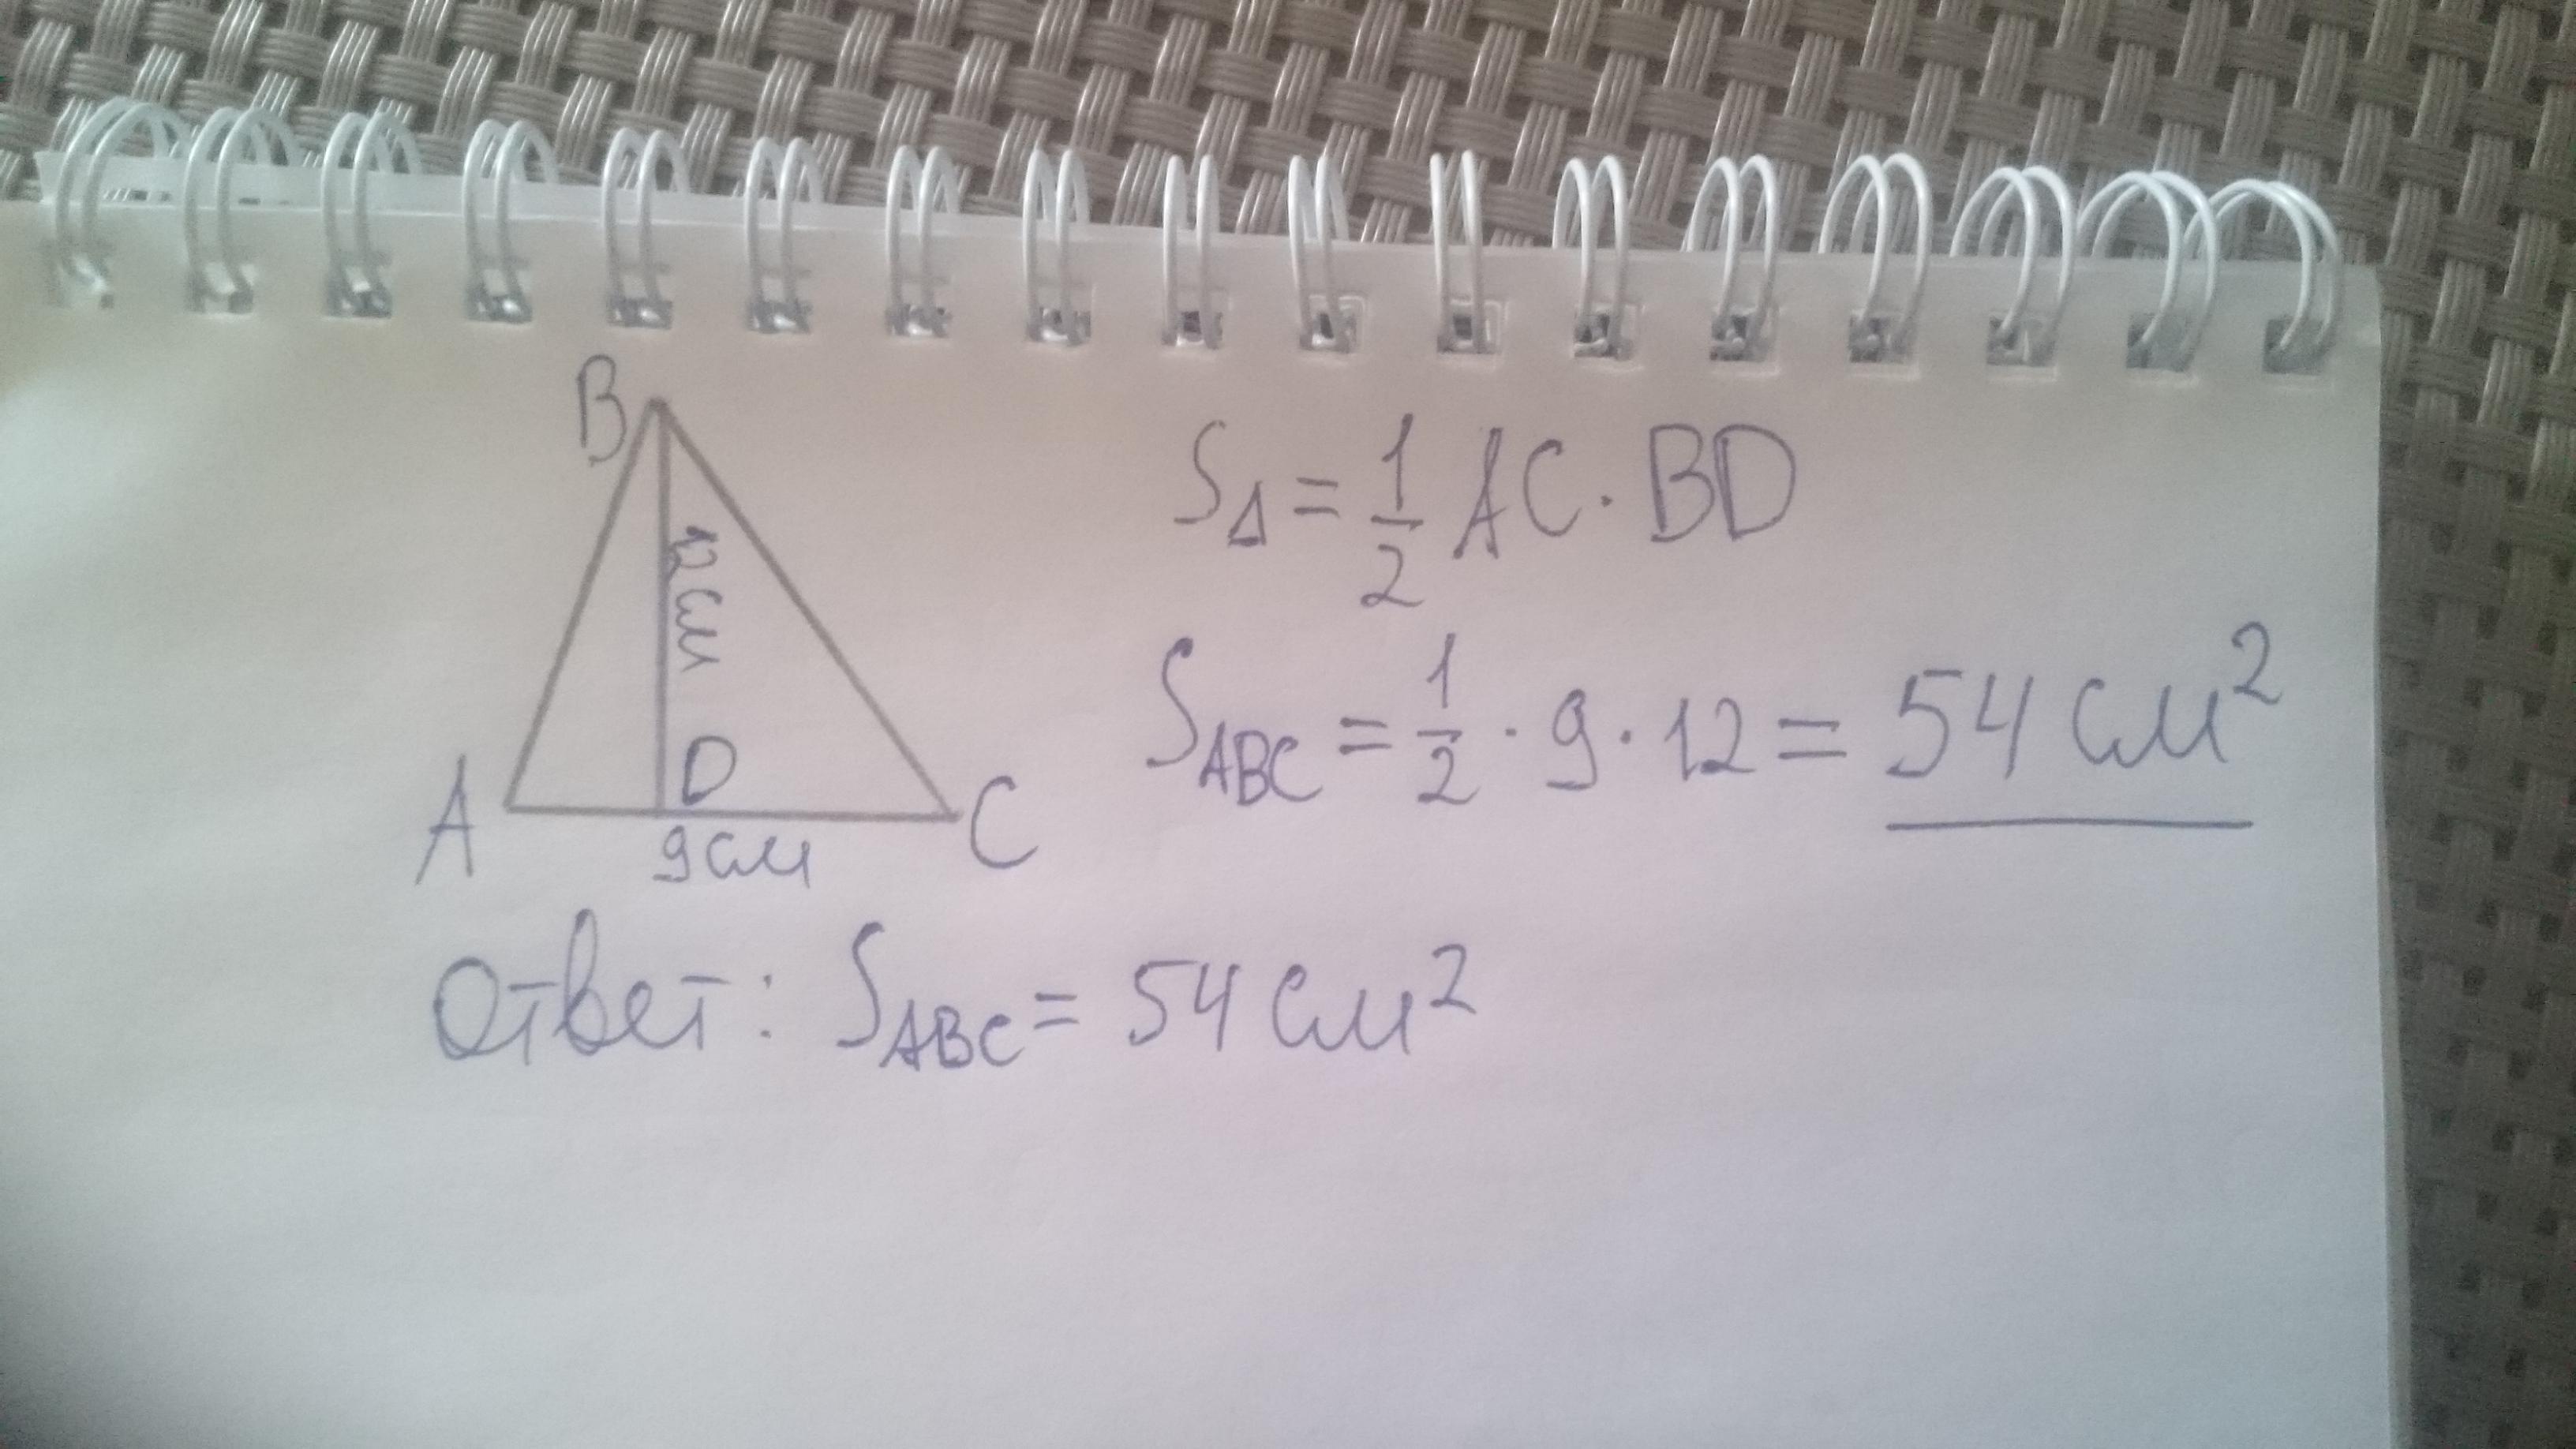 B
12см
D
A
C
9см
S△ = 1/2 AC · BD
S_ABC = 1/2 · 9 · 12 = 54 см²
Ответ: S_ABC = 54 см²